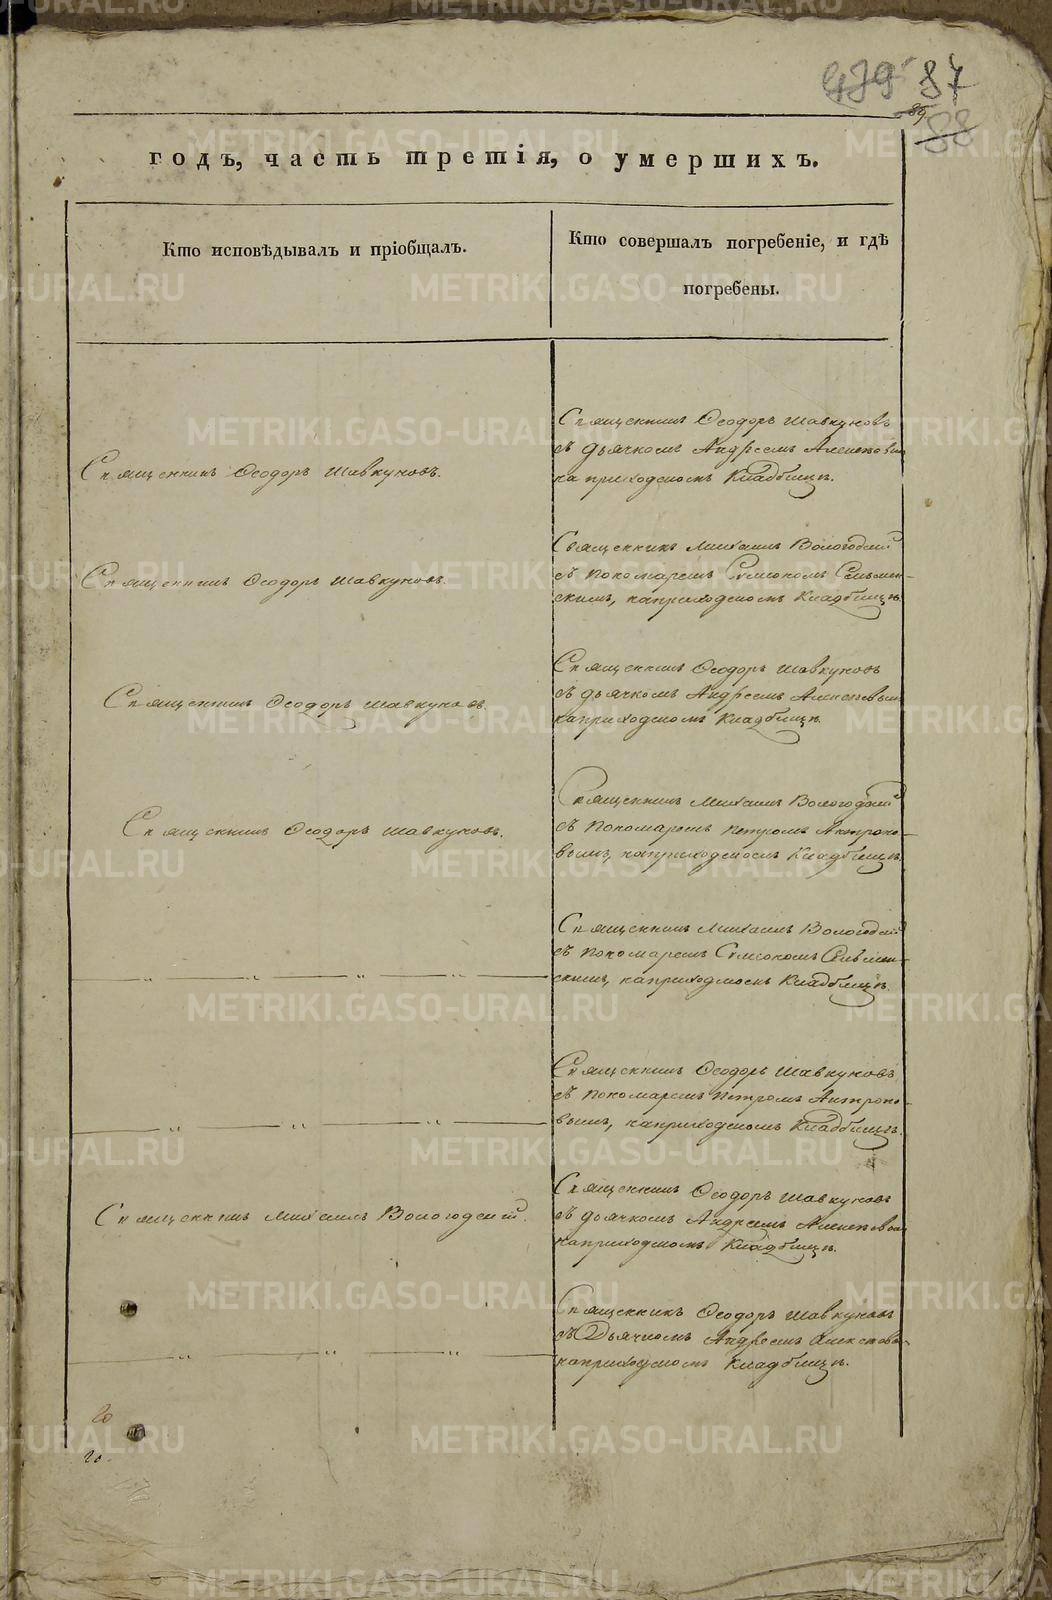 439 87
89
88
годъ, часть третія, о умершихъ.
Кто исповѣдывалъ и пріобщалъ.
Кто совершалъ погребеніе, и гдѣ
погребены.
Священникъ Ѳеодоръ Шавкуновъ.
Священникъ Ѳеодоръ Шавкуновъ
съ дьячкомъ Андреемъ
на приходскомъ Кладбищѣ.
Священникъ Ѳеодоръ Шавкуновъ.
Священникъ Михаилъ Вологодскій
съ пономаремъ Сумеономъ Сельмен-
скимъ, на приходскомъ Кладбищѣ.
Священникъ Ѳеодоръ Шавкуновъ.
Священникъ Ѳеодоръ Шавкуновъ
съ дьячкомъ Андреемъ
на приходскомъ Кладбищѣ.
Священникъ Ѳеодоръ Шавкуновъ.
Священникъ Михаилъ Вологодскій
съ пономаремъ Петромъ Антропо-
вымъ, на приходскомъ Кладбищѣ.
Священникъ Михаилъ Вологодскій
съ пономаремъ Сумеономъ Сельмен-
скимъ, на приходскомъ Кладбищѣ.
Священникъ Ѳеодоръ Шавкуновъ
съ пономаремъ Петромъ Антропо-
вымъ, на приходскомъ Кладбищѣ.
Священникъ Михаилъ Вологодскій.
Священникъ Ѳеодоръ Шавкуновъ
съ дьячкомъ Андреемъ
на приходскомъ Кладбищѣ.
Священникъ Ѳеодоръ Шавкуновъ
съ Дьячкомъ Андреемъ
на приходскомъ Кладбищѣ.
20
20.
METRIKI.GASO-URAL.RU